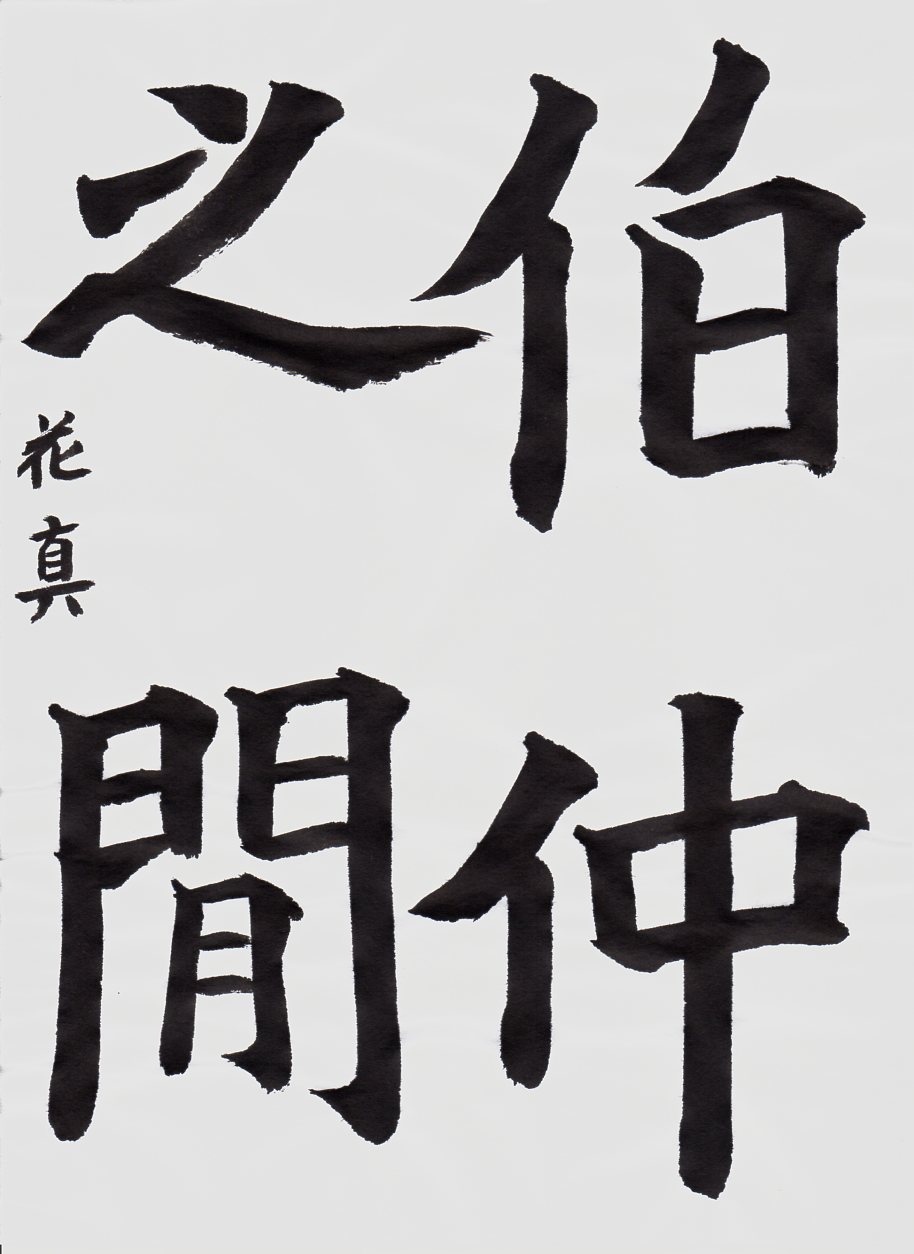 伯仲
之閒
花真